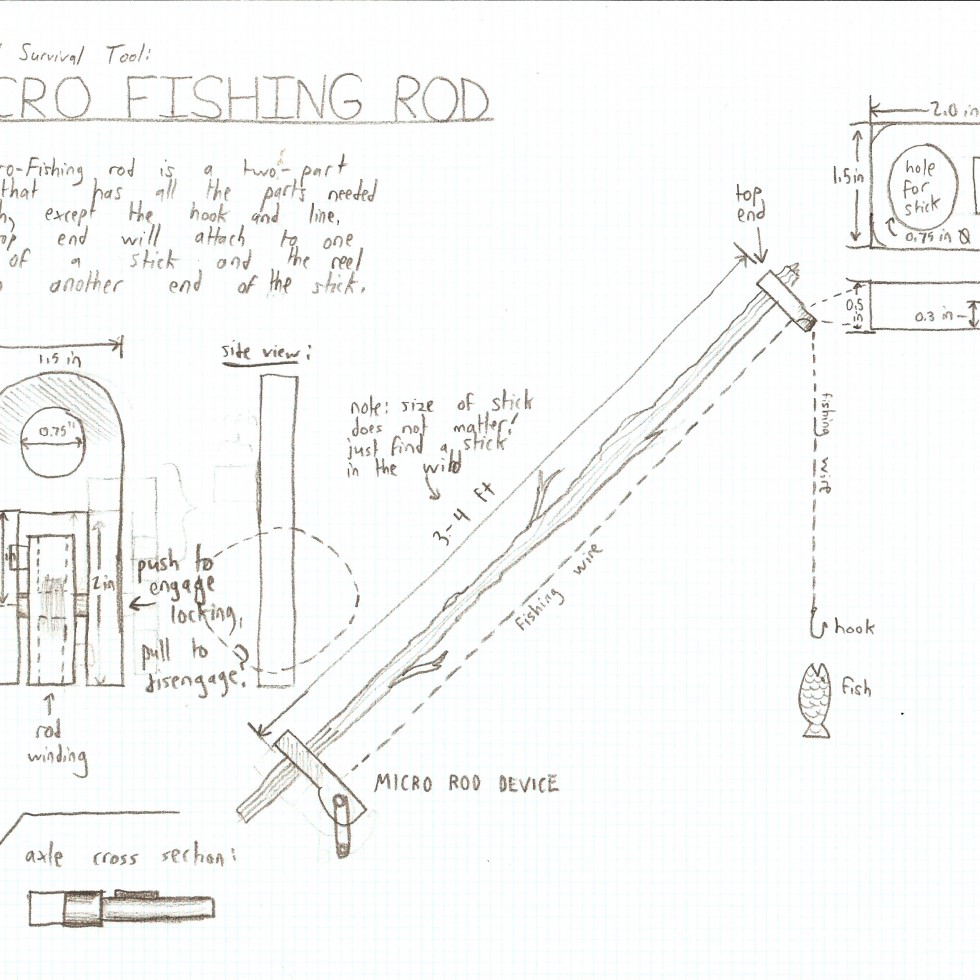 Survival Tool:
CRO FISHING ROD
ro-Fishing rod is a two-part
that has all the parts needed
except the hook and line.
op end will attach to one
of a stick and the reel
another end of the stick.
1.5 in
0.75"
in
2 in
push to
engage
locking,
pull to
disengage?
rod
winding
axle cross section:
side view:
note: size of stick
does not matter!
just find a stick
in the wild
3-4 ft
Fishing wire
MICRO ROD DEVICE
top
end
fishing wire
hook
Fish
2.0 in
1.5 in
hole
for
stick
0.75 in Ø
0.5
in
0.3 in